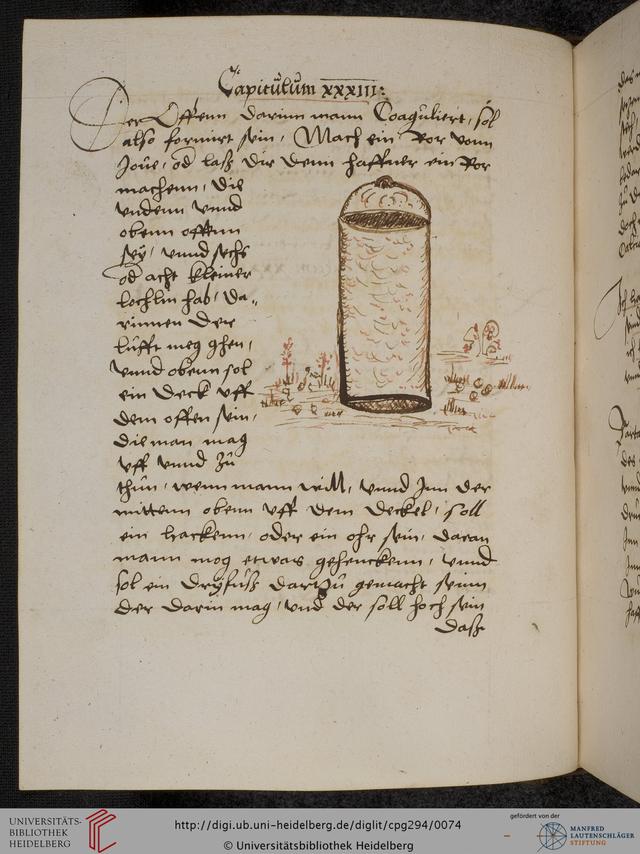 Capitulum xxxiii:
Der Offenn darinn mann Coaguliert, sol
also formirt sein, Mach ein Ror vonn
od laß dir denn haffner ein Ror
machenn, die
vndenn vnnd
obenn offenn
sey, vnnd sechs
od acht kleiner
lochlin hab, da„
rinnen der
lufft meg ghen,
vnnd obenn sol
ein deck vff
dem offen sein,
die man mag
vff vnnd zů
thůn, wenn mann will, vnnd Jnn der
mittenn obenn vff dem deckel, soll
ein hackenn, oder ein ohr sein, daran
mann mog etwas gehenckenn, vnnd
sol ein dryfuß darzů gemacht seinn
der darin mag, vnd der soll hoch sein
daß
UNIVERSITÄTS-
BIBLIOTHEK
HEIDELBERG
http://digi.ub.uni-heidelberg.de/diglit/cpg294/0074
© Universitätsbibliothek Heidelberg
gefördert von der
MANFRED
LAUTENSCHLÄGER
STIFTUNG